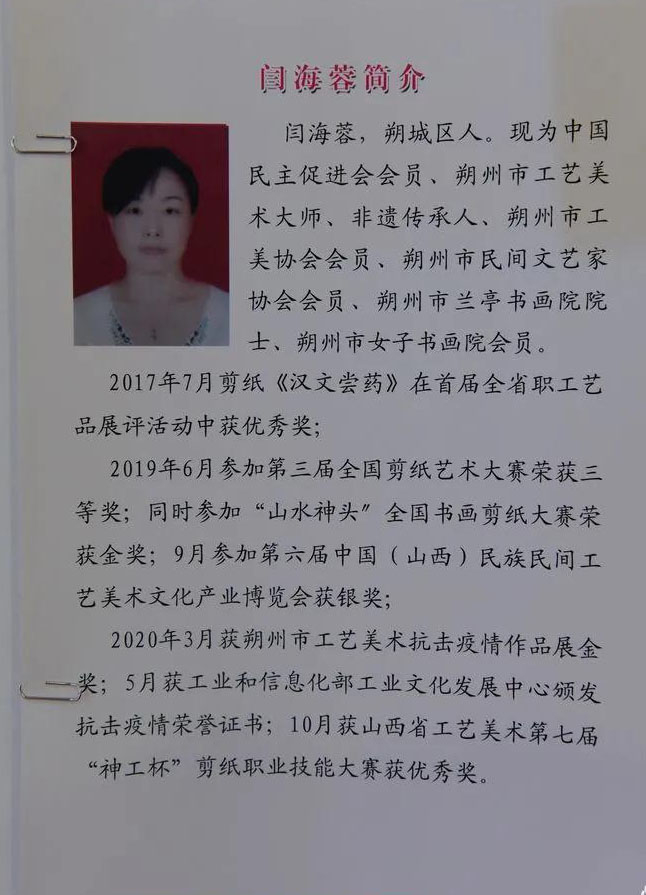 闫海蓉简介
闫海蓉，朔城区人。现为中国
民主促进会会员、朔州市工艺美
术大师、非遗传承人、朔州市工
美协会会员、朔州市民间文艺家
协会会员、朔州市兰亭书画院院
士、朔州市女子书画院会员。
2017年7月剪纸《汉文尝药》在首届全省职工艺
品展评活动中获优秀奖；
2019年6月参加第三届全国剪纸艺术大赛荣获三
等奖；同时参加“山水神头〞全国书画剪纸大赛荣
获金奖；9月参加第六届中国（山西）民族民间工
艺美术文化产业博览会获银奖；
2020年3月获朔州市工艺美术抗击疫情作品展金
奖；5月获工业和信息化部工业文化发展中心颁发
抗击疫情荣誉证书；10月获山西省工艺美术第七届
“神工杯”剪纸职业技能大赛获优秀奖。